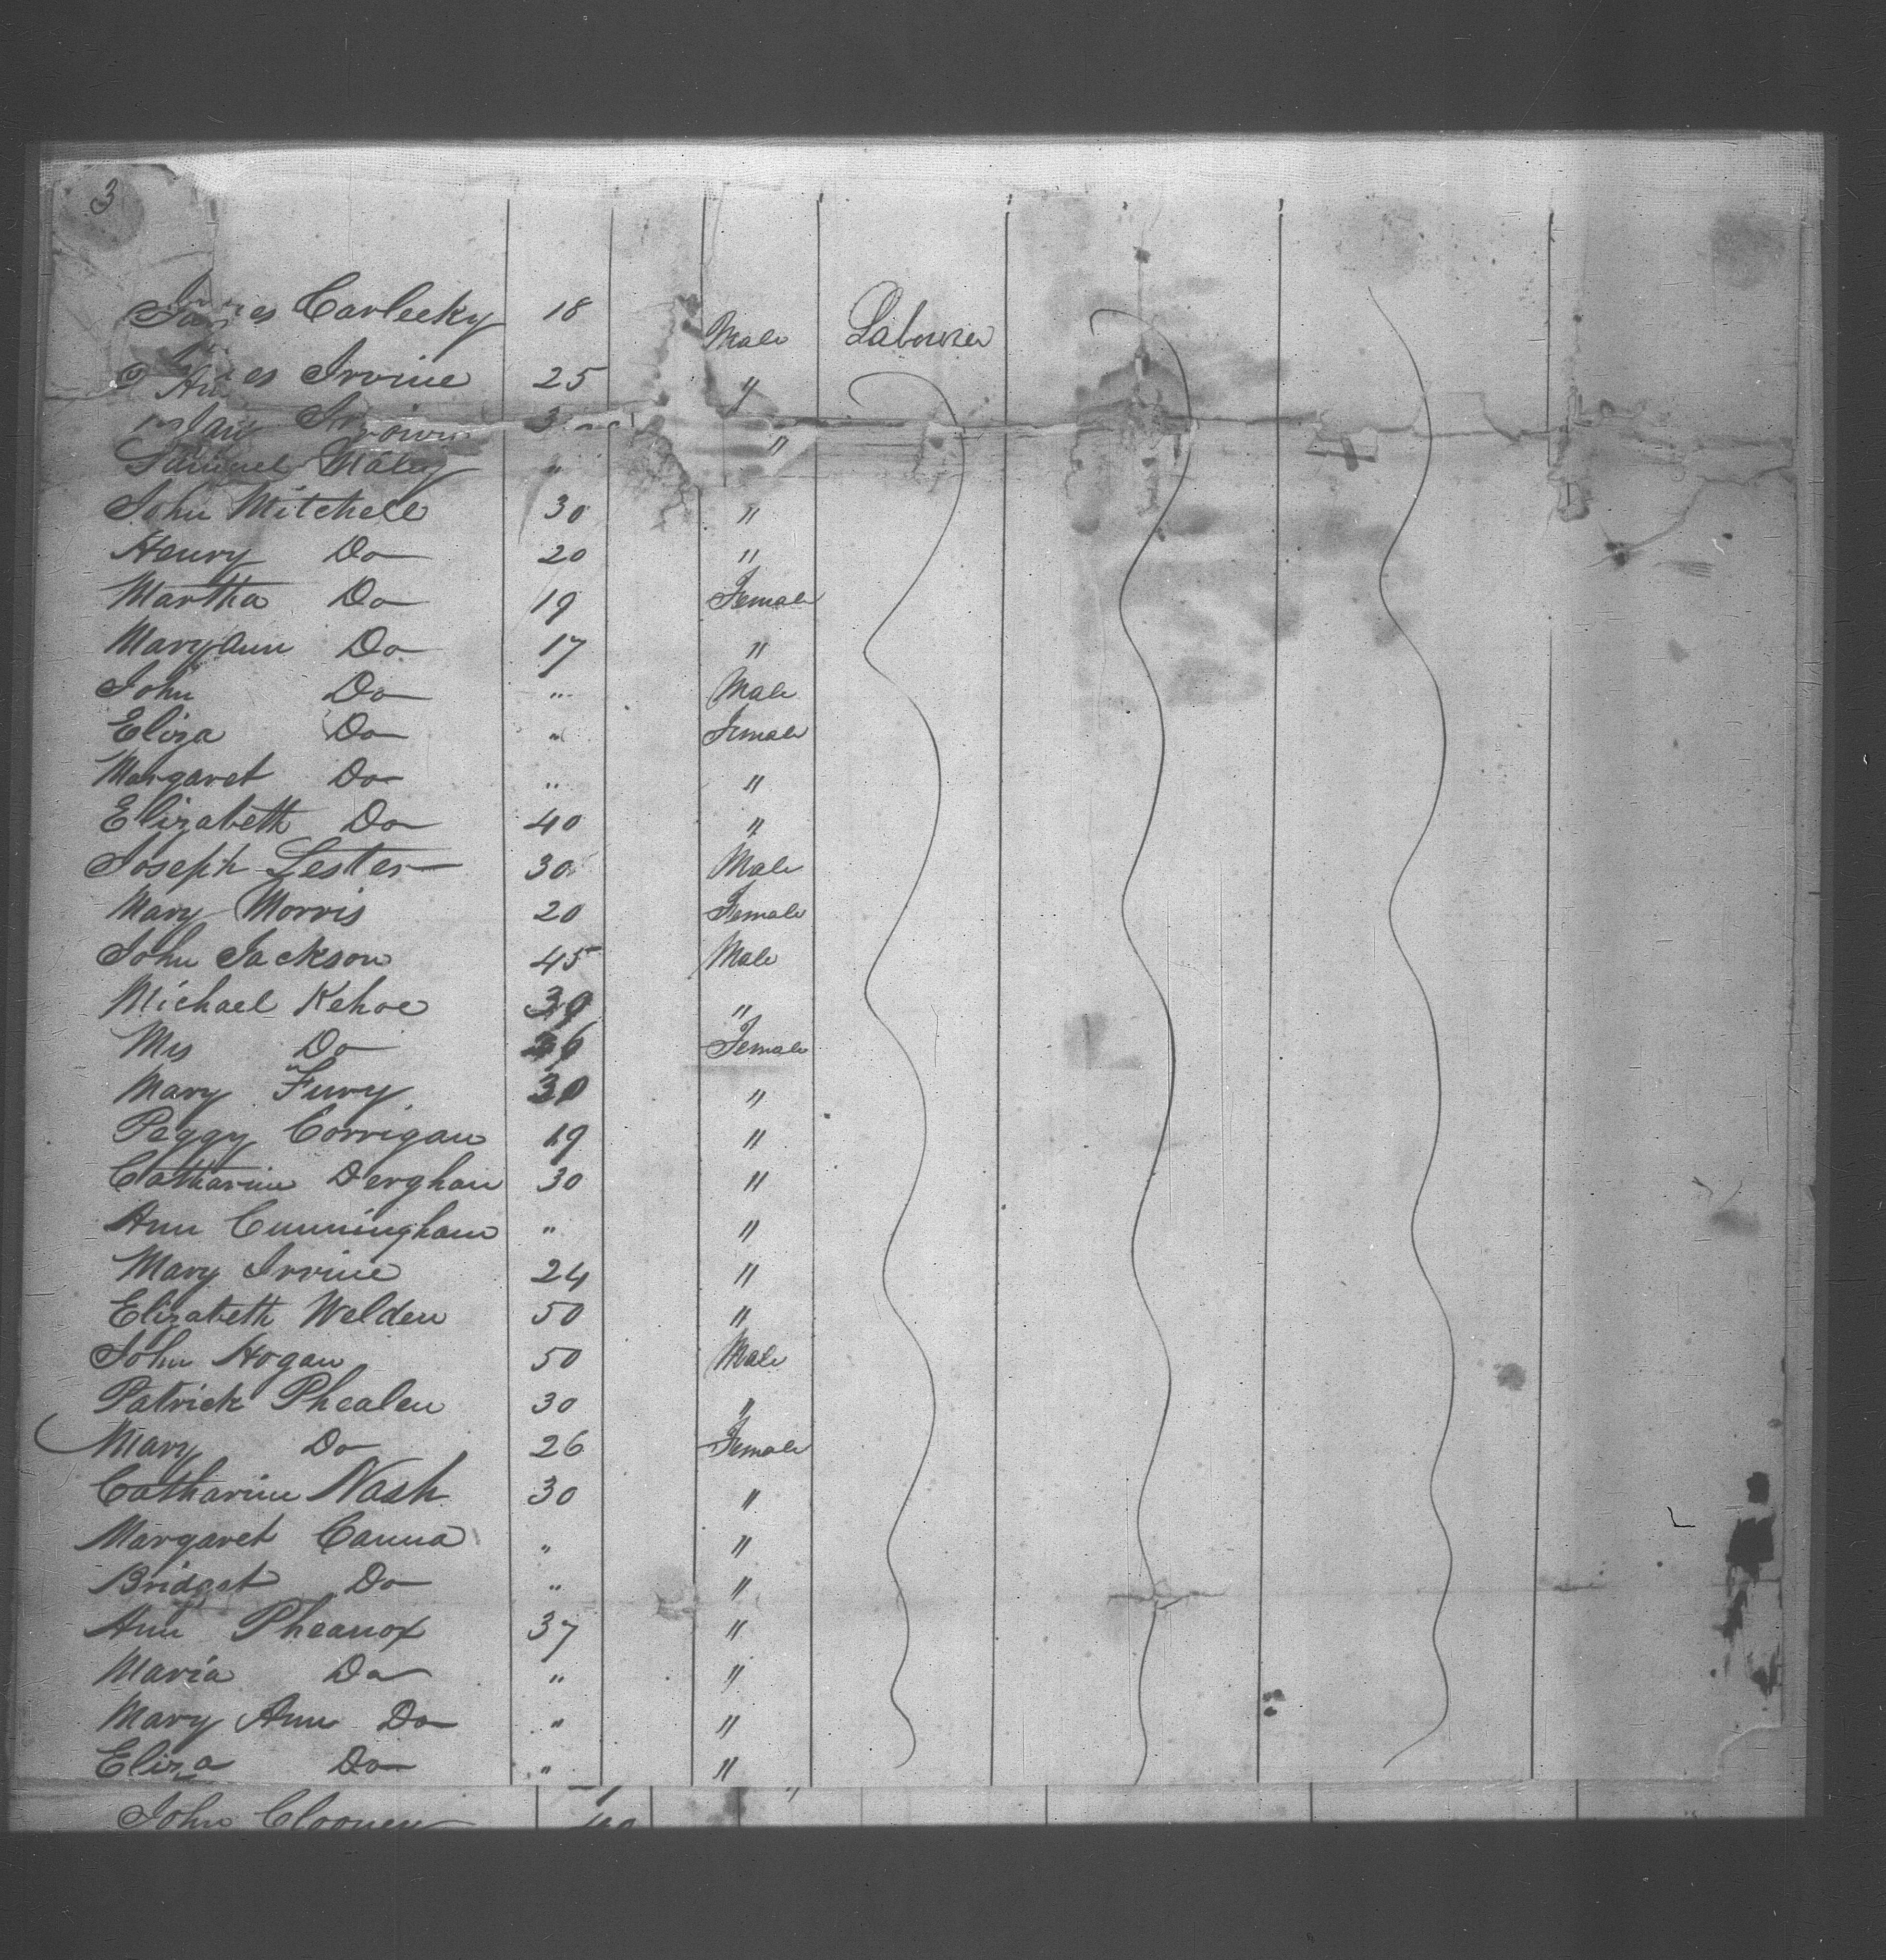 3
James Carleeky 18 Male Labourer
James Irvine 25 "
Samuel Maley " "
John Mitchell 30 "
Henry Do 20 "
Martha Do 19 Female
Mary Ann Do 17 "
John Do " Male
Eliza Do " Female
Margaret Do " "
Elizabeth Do 40 "
Joseph Lester 30 Male
Mary Morris 20 Female
John Jackson 45 Male
Michael Kehoe 39 "
Mrs Do Female
Mary Fury 30 "
Peggy Corrigan 19 "
Catharine Derghan 30 "
Ann Cunningham " "
Mary Irvine 24 "
Elizabeth Welden 50 "
John Hogan 50 Male
Patrick Phealen 30 "
Mary Do 26 Female
Catharine Nash 30 "
Margaret Canna " "
Bridget Do " "
Ann Pheanox 37 "
Maria Do " "
Mary Ann Do " "
Eliza Do " "
John Clooney